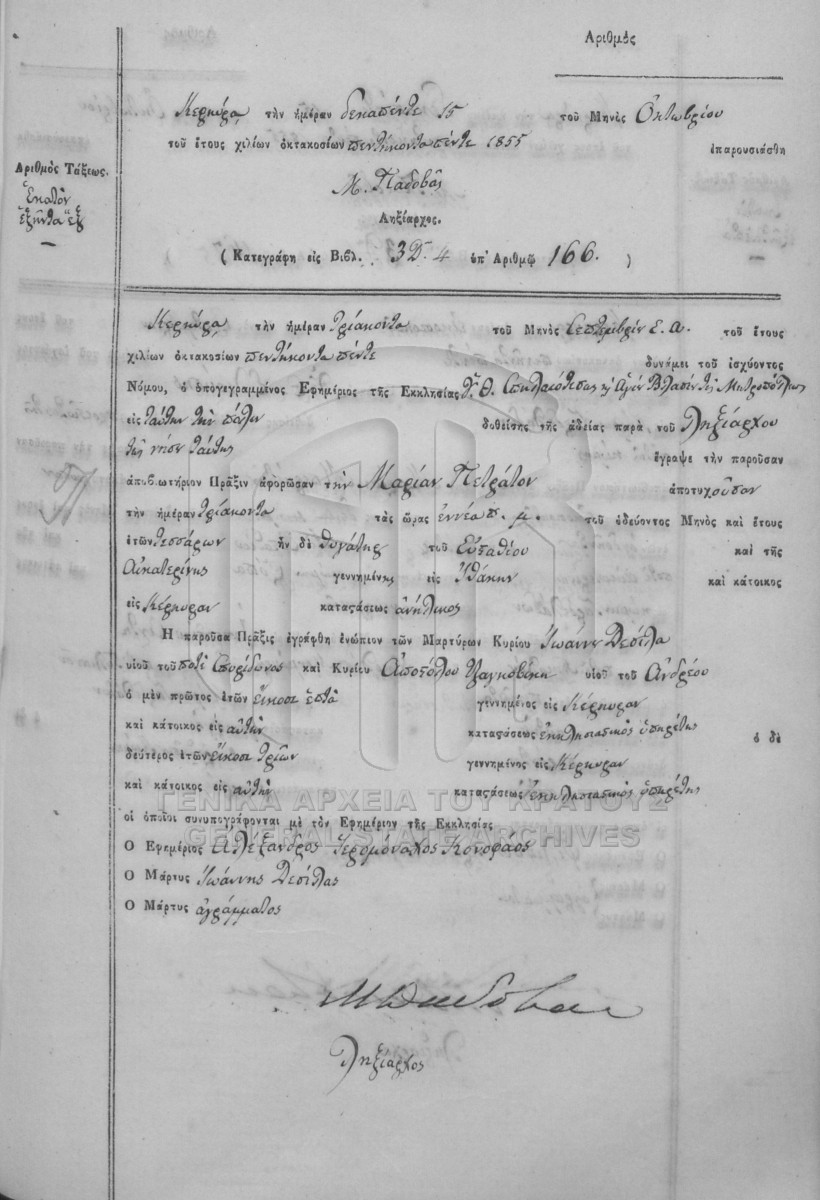 Ἀριθμὸς
Κερκύρα τὴν ἡμέραν δεκαπέντε 15 τοῦ Μηνὸς Ὀκτωβρίου
τοῦ ἔτους χιλίων ὀκτακοσίων πεντήκοντα πέντε 1855 ἐπαρουσιάσθη
Ἀριθμὸς Τάξεως.
Ἑκατὸν
ἑξῆντα ἓξ
Μ. Παδοβᾶς
Ληξίαρχος.
( Κατεγράφη εἰς Βιβλ. 3 D. 4 ὑπ' Ἀριθμῷ 166. )
Κερκύρα τὴν ἡμέραν τριάκοντα τοῦ Μηνὸς Σεπτεμβρίου Ε. Π. τοῦ ἔτους
χιλίων ὀκτακοσίων πεντήκοντα πέντε δυνάμει τοῦ ἰσχύοντος
Νόμου, ὁ ὑπογεγραμμένος Ἐφημέριος τῆς Ἐκκλησίας Θ. Σπηλαιότισας Ἁγίου Βλασίου τῆς Μητροπόλεως
εἰς ταύτην τὴν πόλιν δοθείσης τῆς ἀδείας παρὰ τοῦ Ληξιάρχου
τῆς νήσου ταύτης ἔγραψε τὴν παροῦσαν
ἀποβωτήριον Πρᾶξιν ἀφορῶσαν τὴν Μαρίαν Πετράτου ἀποτυχοῦσαν
τὴν ἡμέραν τριάκοντα τὰς ὥρας ἐννέα π. μ. τοῦ ὁδεύοντος Μηνὸς καὶ ἔτους
ἐτῶν τεσσάρων ἦν δὲ θυγάτηρ τοῦ Εὐσταθίου καὶ τῆς
Αἰκατερίνης γεννημένης εἰς Ἰθάκην καὶ κάτοικος
εἰς Κέρκυραν καταστάσεως ἀνήλικος
Ἡ παροῦσα Πρᾶξις ἐγράφθη ἐνώπιον τῶν Μαρτύρων Κυρίου Ἰωάννου Δεσύλα
υἱοῦ τοῦ ποτὲ Σπυρίδωνος καὶ Κυρίου Ἀποστόλου υἱοῦ τοῦ Ἀνδρέου
ὁ μὲν πρῶτος ἐτῶν εἴκοσι ἑπτὰ γεννημένος εἰς Κέρκυραν
καὶ κάτοικος εἰς αὐτὴν καταστάσεως ἐκκλησιαστικὸς ὑπηρέτης ὁ δὲ
δεύτερος ἐτῶν εἴκοσι τριῶν γεννημένος εἰς Κέρκυραν
καὶ κάτοικος εἰς αὐτὴν καταστάσεως ἐκκλησιαστικὸς ὑπηρέτης
οἱ ὁποῖοι συνυπογράφονται μὲ τὸν Ἐφημέριον τῆς Ἐκκλησίας
Ὁ Ἐφημέριος Ἀλέξανδρος Ἱερομόναχος Κονοφάος
Ὁ Μάρτυς Ἰωάννης Δεσύλας
Ὁ Μάρτυς ἀγράμματος
ΓΕΝΙΚΑ ΑΡΧΕΙΑ ΤΟΥ ΚΡΑΤΟΥΣ
GENERAL STATE ARCHIVES
Μ Παδοβας
Ληξίαρχος